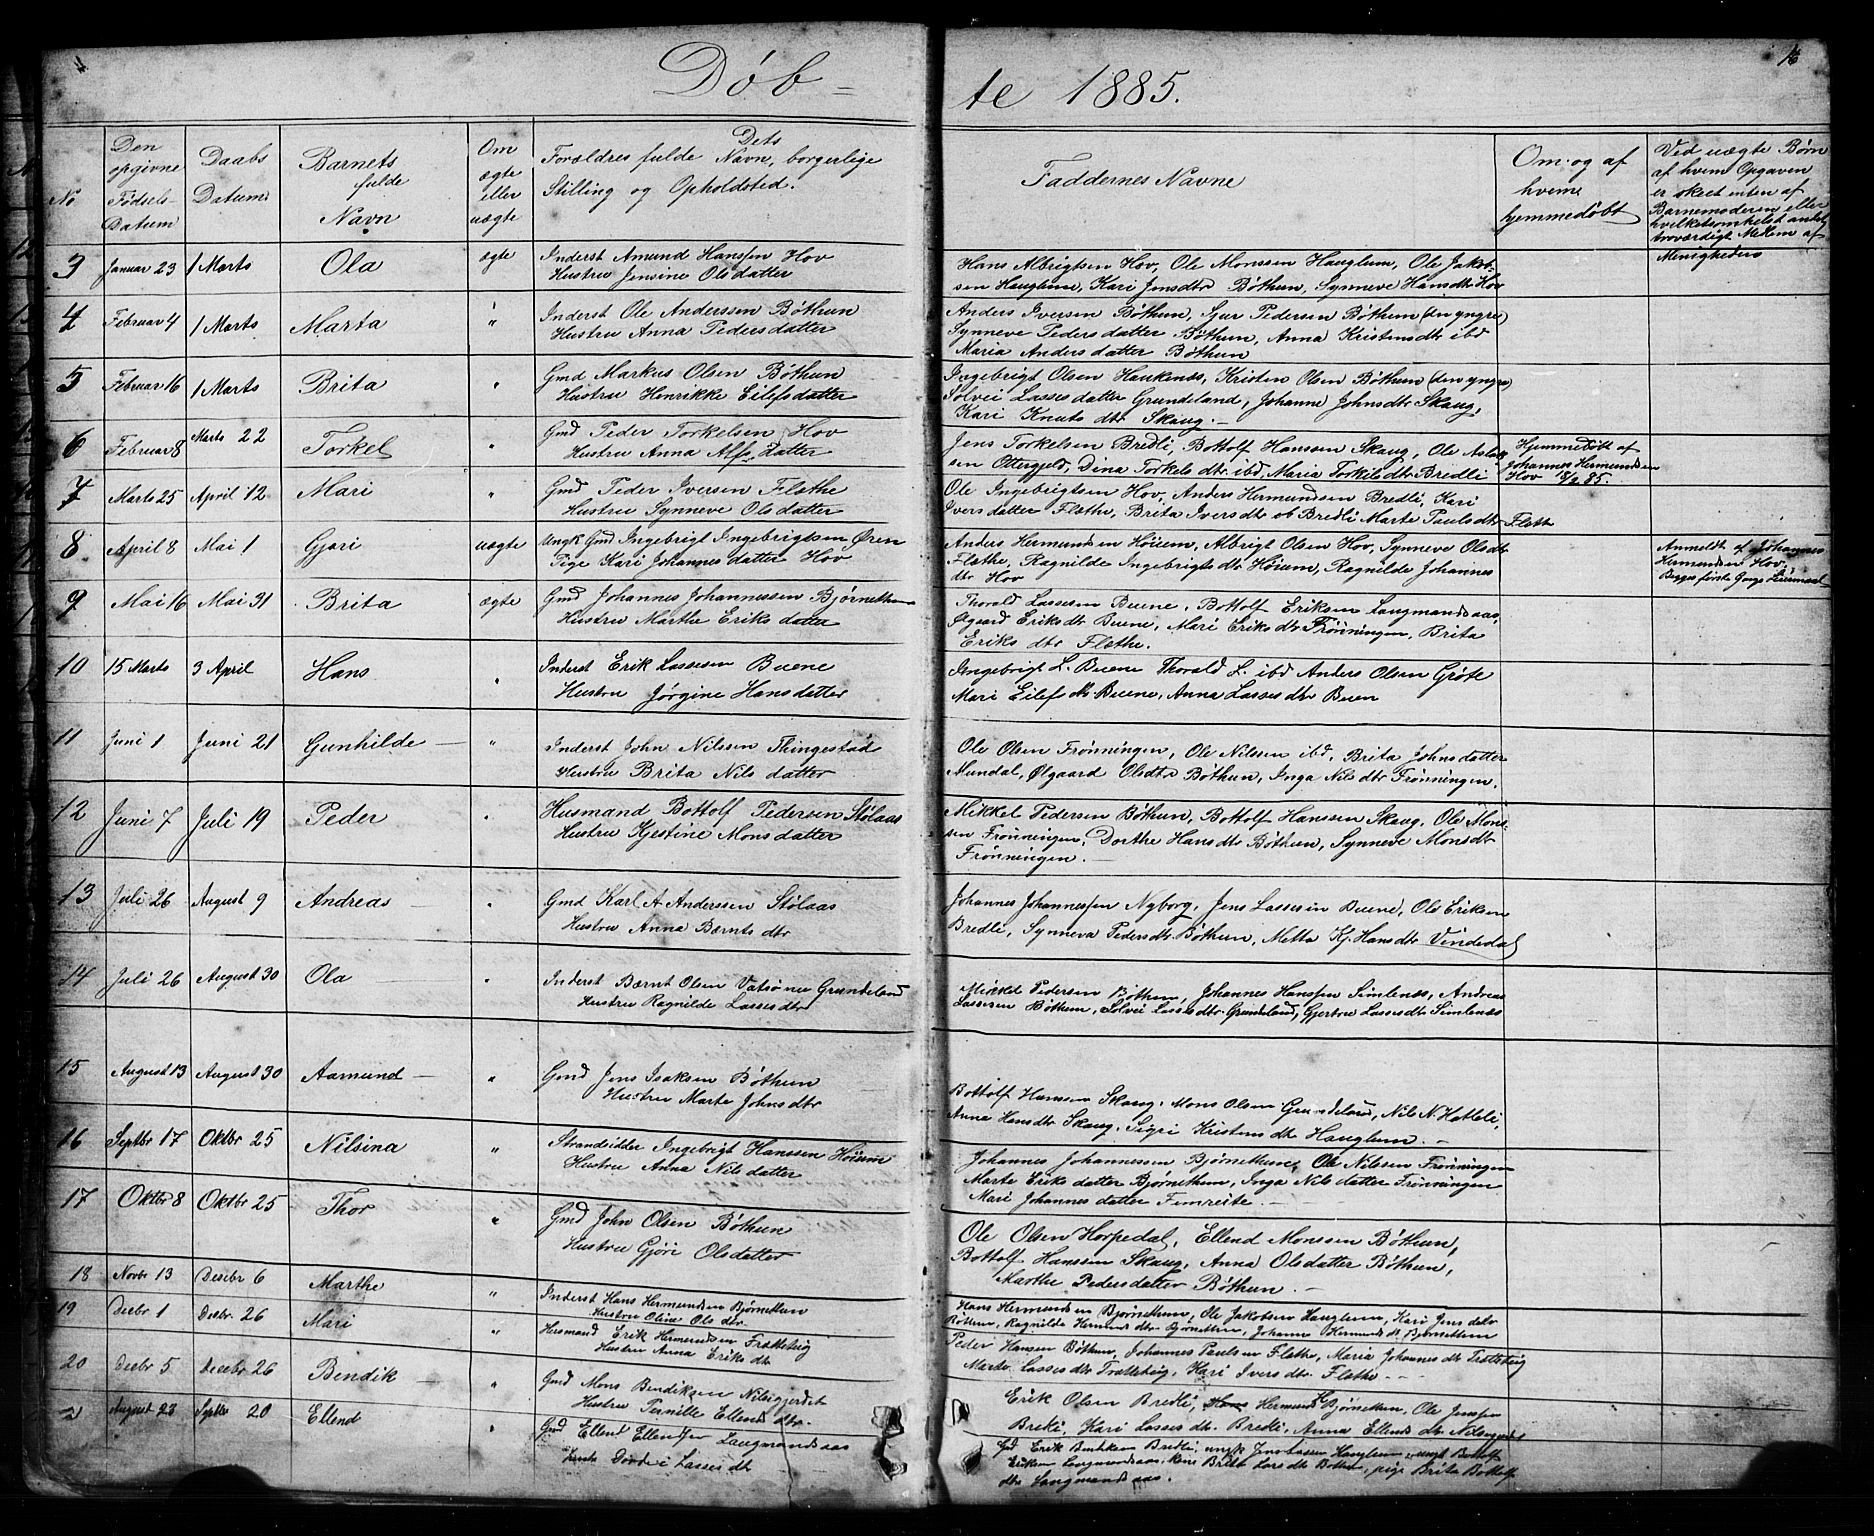 Døb-te 1885.
16
No
Den opgivne Fødsels-Datum
Daabs Datum
Barnets fulde Navn
Om ægte eller uægte
Dets Forældres fulde Navn, borgerlige Stilling og Opholdsted.
Faddernes Navne
Om og af hvem hjemmedøbt
Ved uægte Børn af hvem Opgaven er skeet enten af Barnemoderen eller hvilketsomhelst andet troværdigt Medlem af Menigheden
3 Januar 23 1 Marts Ola ægte Inderst Amund Hanssen Hov
Hustru Jensine Olsdatter
Hans Albrigtsen Hov, Ole Monssen Hauglum, Ole Jakob-
sen Hauglum, Kari Jensdtr Bøthun, Synneve Hansdtr Hov
4 Februar 4 1 Marts Marta " Inderst Ole Anderssen Bøthun
Hustru Anna Pedersdatter
Anders Iversen Bøthun, Sjur Pedersen Bøthun (den yngre)
Synneve Pedersdatter Bøthun, Anna Kristensdtr ibd
Maria Andersdatter Bøthun
5 Februar 16 1 Marts Brita " Gmd Markus Olsen Bøthun
Hustru Henrikke Eilefsdatter
Ingebrigt Olsen Haukenæs, Kristen Olsen Bøthun (den yngre)
Solvei Lassesdatter Grundeland, Johanne Johnsdtr Skaug,
Kari Knuts dtr Skaug.
6 Februar 8 Marts 22 Torkel " Gmd Peder Torkelsen Hov
Hustru Anna Alfsdatter
Jens Torkelsen Bredli, Bottolf Hanssen Skaug, Ole Aslak
sen Ottergjeld, Dina Torkels dtr ibd, Maria Torkilsdtr Bredli
Hjemmedøbt af Johannes Hermundsen Hov 18/2 85.
7 Marts 25 April 12 Mari " Gmd Peder Iversen Flæthe
Hustru Synneve Olsdatter
Ole Ingebrigtsen Hov, Anders Hermundsen Bredli, Kari
Iversdatter Flæthe, Brita Iversdtr ob Bredli Marte Paulsdtr Flæth
8 April 8 Mai 1 Gjøri uægte Ungk Gmd Ingebrigt Ingebrigtsen Øren
Pige Kari Johannesdatter Hov
Anders Hermundsen Høium, Albrigt Olsen Hov, Synneve Olsdtr
Flæthe, Ragnilde Ingebrigtsdtr Høium, Ragnilde Johannes
dtr Hov
Anmeldt af Johannes Hermundsen Hov. Begges første Gangs Leiermaal
9 Mai 16 Mai 31 Brita ægte Gmd Johannes Johannessen Bjørnethun
Hustru Marthe Eriks datter
Thorald Lassesen Buene, Bottolf Eriksen Laugmandsaas
Ølgaard Eriksdtr Buene, Mari Eriksdtr Frønningen, Brita
Eriks dtr Flæthe.
10 15 Marts 3 April Hans " Inderst Erik Lassesen Buene
Hustru Jørgine Hansdatter
Ingebrigt L. Buene Thorald L. ibd Anders Olsen Grøte
Mari Eilefdtr Buene, Anna Lassesdtr Buen
11 Juni 1 Juni 21 Gunhilde " Inderst John Nilssen Thingestad
Hustru Brita Nils datter
Ole Olsen Frønningen, Ole Nilssen ibd, Brita Johnsdatter
Mundal, Ølgaard Olsdtr Bøthun, Inga Nilsdtr Frønningen.
12 Juni 7 Juli 19 Peder " Husmand Bottolf Pedersen Stølaas
Hustru Kjestine Monsdatter
Mikkel Pedersen Bøthun, Bottolf Hanssen Skaug, Ole Mons-
sen Frønningen, Dorthe Hansdtr Bøthun, Synneve Monsdtr
Frønningen.
13 Juli 26 August 9 Andreas " Gmd Karl A Anderssen Stølaas
Hustru Anna Bærnts dtr
Johannes Johannessen Nyborg, Jens Lassesen Buene, Ole Eriksen
Bredli, Synneva Pedersdtr Bøthun, Metta Kj. Hansdtr Vindedal
14 Juli 26 August 30 Ola " Inderst Bærnt Olsen Vatsøner Grundeland
Hustru Ragnilde Lassesdtr
Mikkel Pedersen Bøthun, Johannes Hanssen Simlenæs, Andreas
Lassesen Bøthun, Solvei Lassesdtr Grundeland, Gjertrue Lassesdtr Simlenæs
15 August 13 August 30 Aamund " Gmd Jens Isaksen Bøthun
Hustru Marte Johnsdtr
Bottolf Hanssen Skaug, Mons Olsen Grundeland, Nils N. Hatteli,
Anna Hansdtr Skaug, Sigri Kristensdtr Hauglum.
16 Septbr 17 Oktbr 25 Nilsina " Strandsidder Ingebrigt Hanssen Høium
Hustru Anna Nils datter
Johannes Johannessen Bjørnethun, Ole Nilssen Frønningen
Marte Eriks datter Bjørnethun, Inga Nils datter Frønningen
Mari Johannes datter Fimreite.
17 Oktbr 8 Oktbr 25 Thor " Gmd John Olsen Bøthun
Hustru Gjøri Olsdatter
Ole Olsen Horpedal, Ellend Monssen Bøthun,
Bottolf Hanssen Skaug, Anna Olsdatter Bøthun,
Marthe Pedersdatter Bøthun.
18 Novbr 13 Desebr 6 Marthe " Inderst Hans Hermundsen Bjørnethun
Hustru Oline Ols dtr
Hans Hermundsen Bjørnethun, Ole Jakobsen Hauglum, Kari Jens datr
Bøthun, Ragnilde Hermundsdtr Bjørnethun, Johanne Hermundsdt Bjørnethun
19 Decbr 1 Decbr. 26 Mari " Husmand Erik Hermundsen Trætteteig
Hustru Anna Eriks dtr
Peder Hansen Bøthun, Johannes Paulsen Flæthe, Maria Johannesdtr Trætteteig
Marte Lassesdtr Trætteteig, Kari Iversdtr. Flæthe
20 Decbr 5 Decebr 26 Bendik " Gmd Mons Bendiksen Nilsgjerdet
Hustru Pernille Ellends dtr.
Erik Olsen Bredli, Hermund H Bjørnethun, Ole Jenssen
Bredli, Kari Lasses dt. Bredli, Anna Ellends dtr Nilsgjerdet
2 August 23 Septbr 20 Ellend " Gmd Ellend Ellendssen Laugmandsaas
Lasses dt
Gmd Erik Bredli, ungk Jens Lassen Hauglum, ungk Bottolf
Eriksen Laugmandsaas, Brita Bottolf
dtr Laugmandsaas.